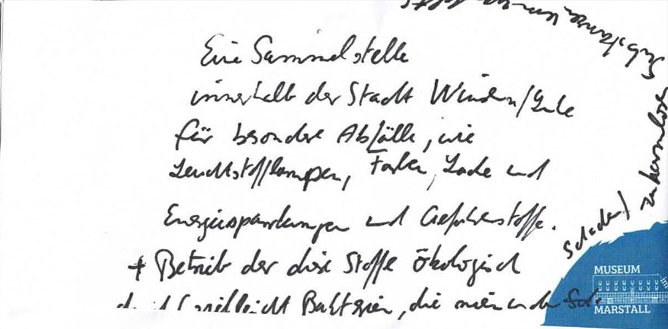 Eine Sammelstelle
innerhalb der Stadt Winsen/Luhe
für besondere Abfälle, wie
Leuchtstofflampen, Farben, Lacke und
Energiesparlampen und Gefahrenstoffe.
+ Betrieb der diese Stoffe ökologisch
Bakterien, die man in der
Substanzen
schaden/
MUSEUM
MARSTALL